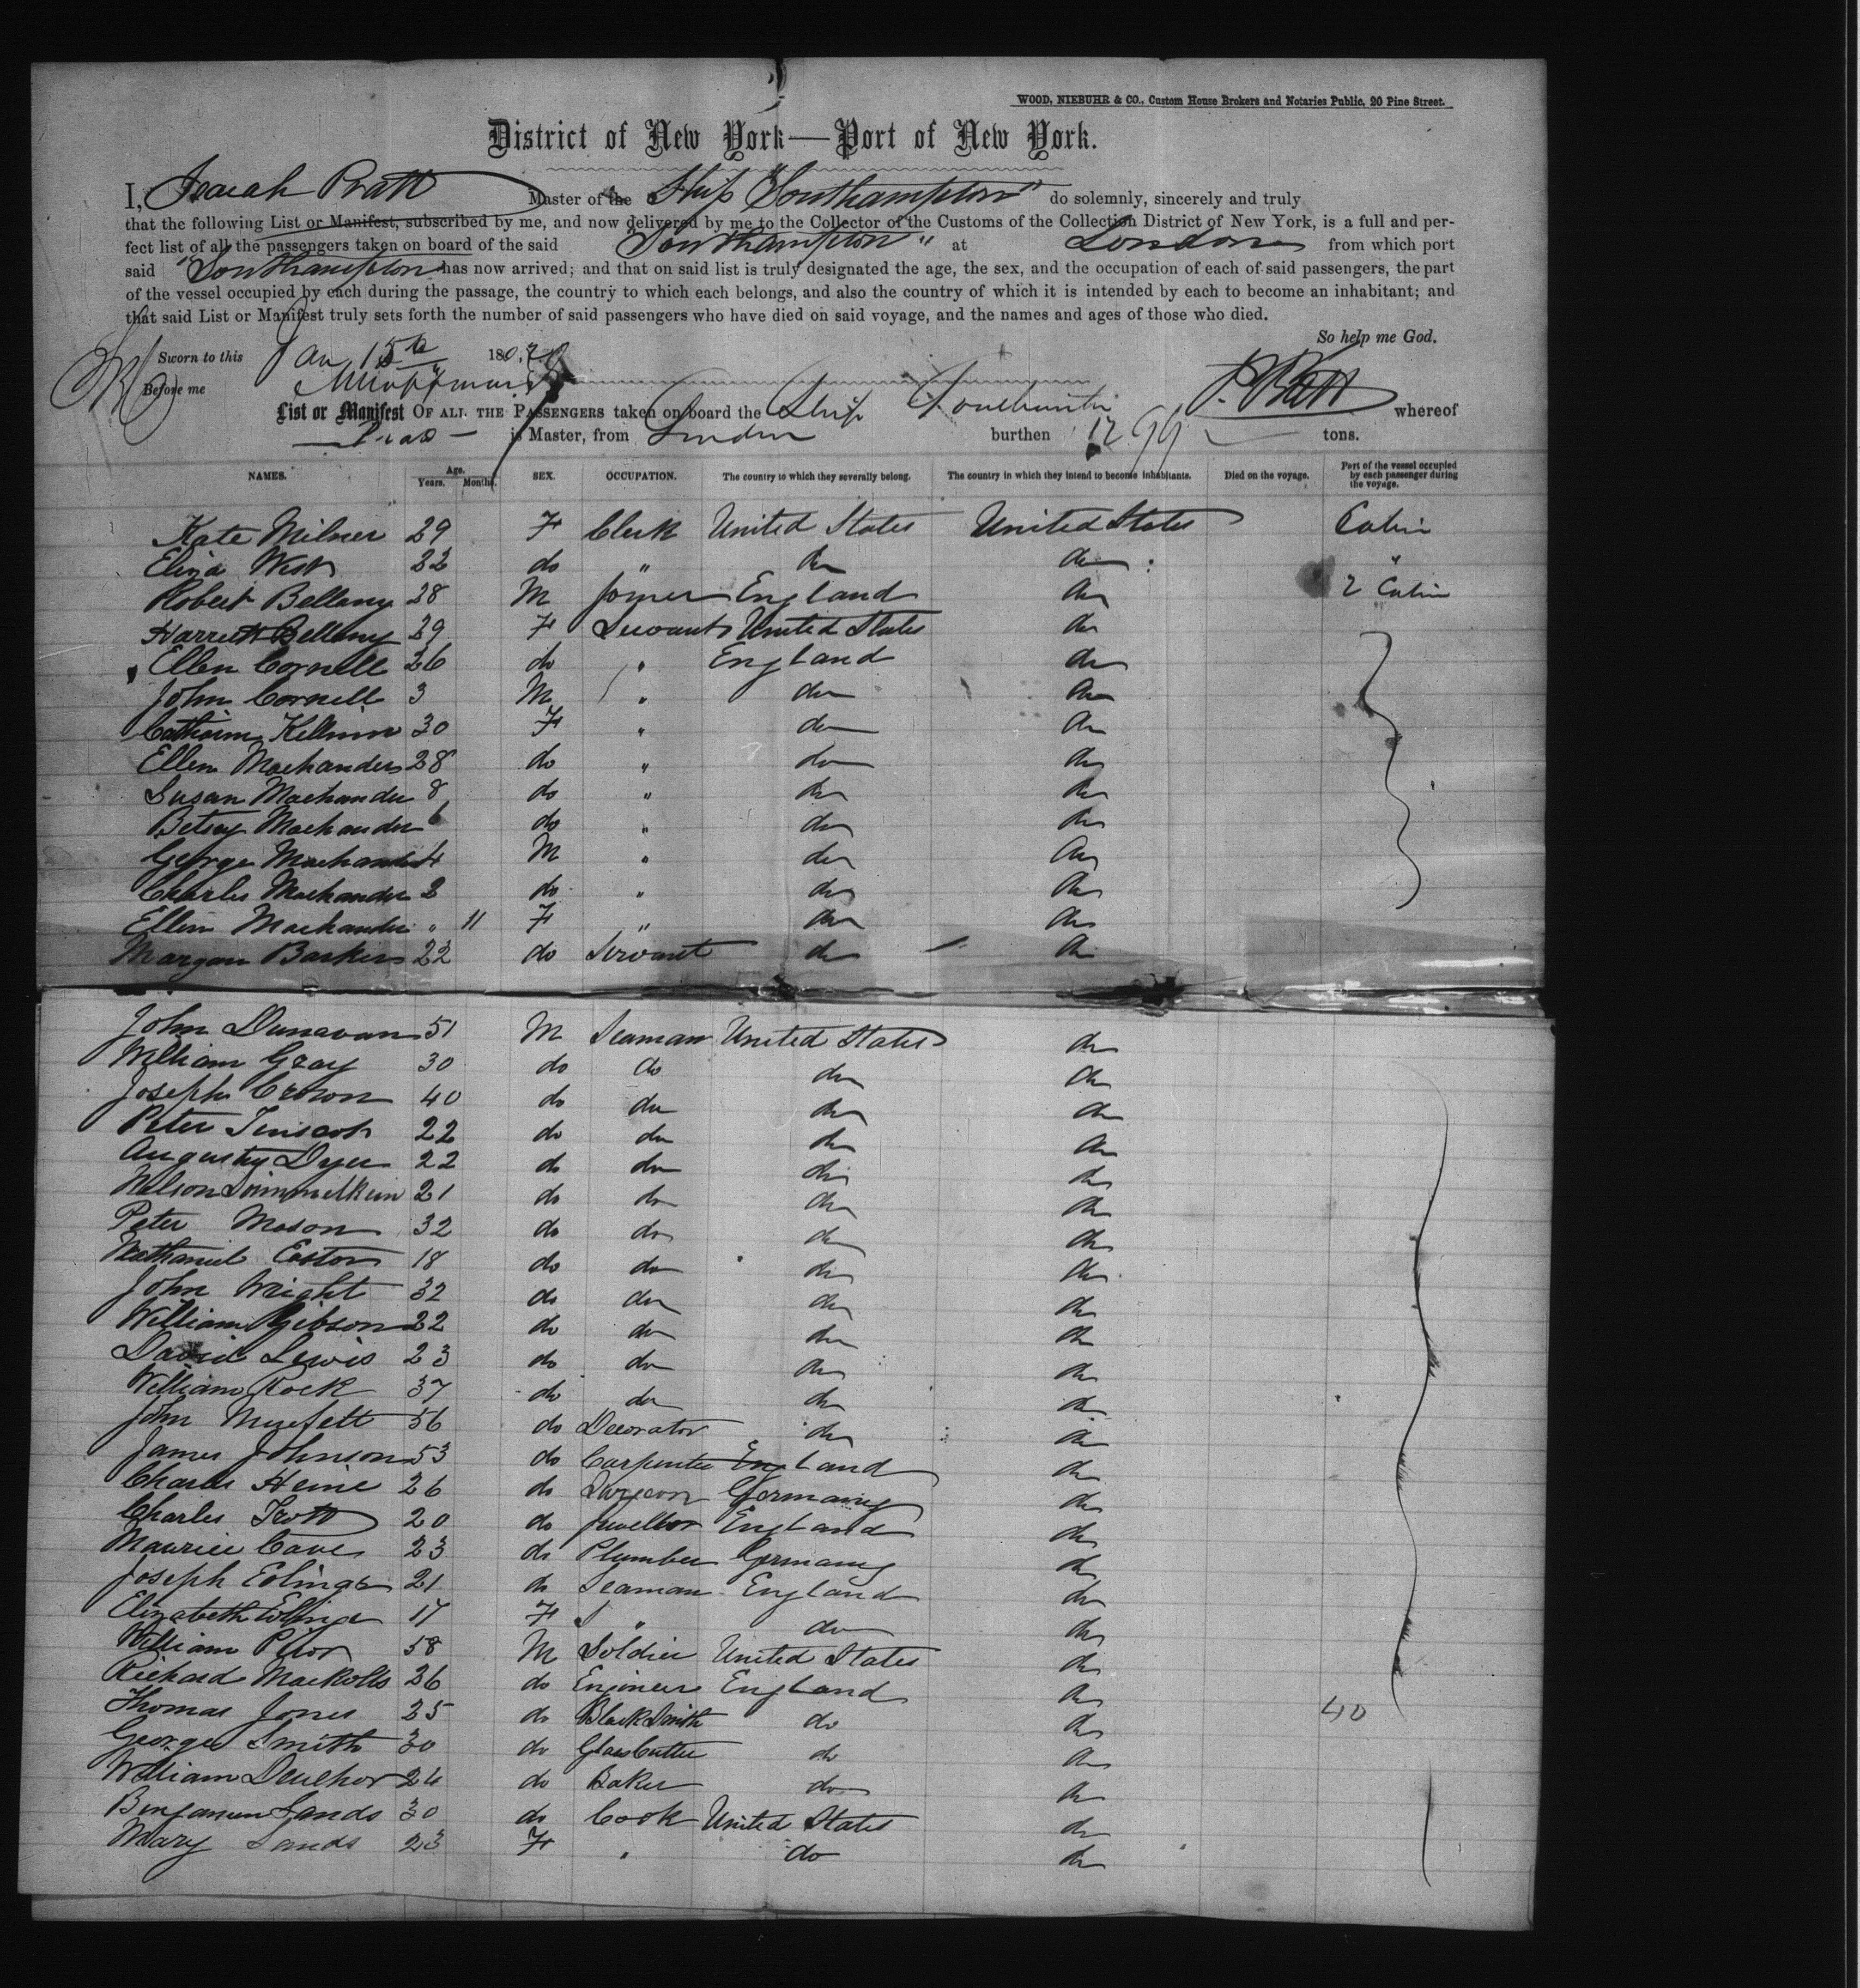 WOOD, NIEBUHR & CO., Custom House Brokers and Notaries Public, 20 Pine Street.
District of New York—Port of New York.
I, Isaiah Pratt Master of the Ship "Southampton" do solemnly, sincerely and truly
that the following List or Manifest, subscribed by me, and now delivered by me to the Collector of the Customs of the Collection District of New York, is a full and per-
fect list of all the passengers taken on board of the said "Southampton" at London from which port
said "Southampton" has now arrived; and that on said list is truly designated the age, the sex, and the occupation of each of said passengers, the part
of the vessel occupied by each during the passage, the country to which each belongs, and also the country of which it is intended by each to become an inhabitant; and
that said List or Manifest truly sets forth the number of said passengers who have died on said voyage, and the names and ages of those who died.
So help me God.
Sworn to this Jan 15th 180,70
Before me I. Pratt
List or Manifest OF ALL THE PASSENGERS taken on board the Ship whereof
is Master, from London burthen 1299 tons.
NAMES. Age. Years. Months. SEX. OCCUPATION. The country to which they severally belong. The country in which they intend to become inhabitants. Died on the voyage. Part of the vessel occupied by each passenger during the voyage.
Kate Milner 29 F Clerk United States United States Cabin
Eliza West 22 do " do do "
Robert Bellany 28 M Joiner England do 2 Cabin
Harriett Bellany 29 F Servant United States do
Ellen Cornell 26 do " England do
John Cornell 3 M " do do
Catharine Kellman 30 F " do do
Ellen Machander 28 do " do do
Susan Machander 8 do " do do
Betsey Machander 6 do " do do
George Machander 4 M " do do
Charles Machander 2 do " do do
Ellen Machander " 11 F " do do
Margan Barkins 22 do Servant do do
John Dunavan 51 M Seaman United States do
William Gray 30 do do do do
Joseph Crown 40 do do do do
Peter 22 do do do do
Augustus Dyer 22 do do do do
Nelson 21 do do do do
Peter Mason 32 do do do do
Nathaniel Easton 18 do do do do
John Wright 32 do do do do
William Gibson 22 do do do do
David Lewis 23 do do do do
William Rock 37 do do do do
John 56 do Decorator do do
James Johnson 53 do Carpenter England do
Charles Heine 26 do Surgeon Germany do
Charles Trott 20 do Jewellor England do
Maurice Cave 23 do Plumber Germany do
Joseph 21 do Seaman England do
Elizabeth 17 F " do do
William Prior 58 M Soldier United States do
Richard 26 do Engineer England do
Thomas Jones 25 do BlackSmith do do 40
George Smith 30 do Glass Cutter do do
William Deuchor 24 do Baker do do
Benjamin Sands 30 do Cook United States do
Mary Sands 23 F " do do